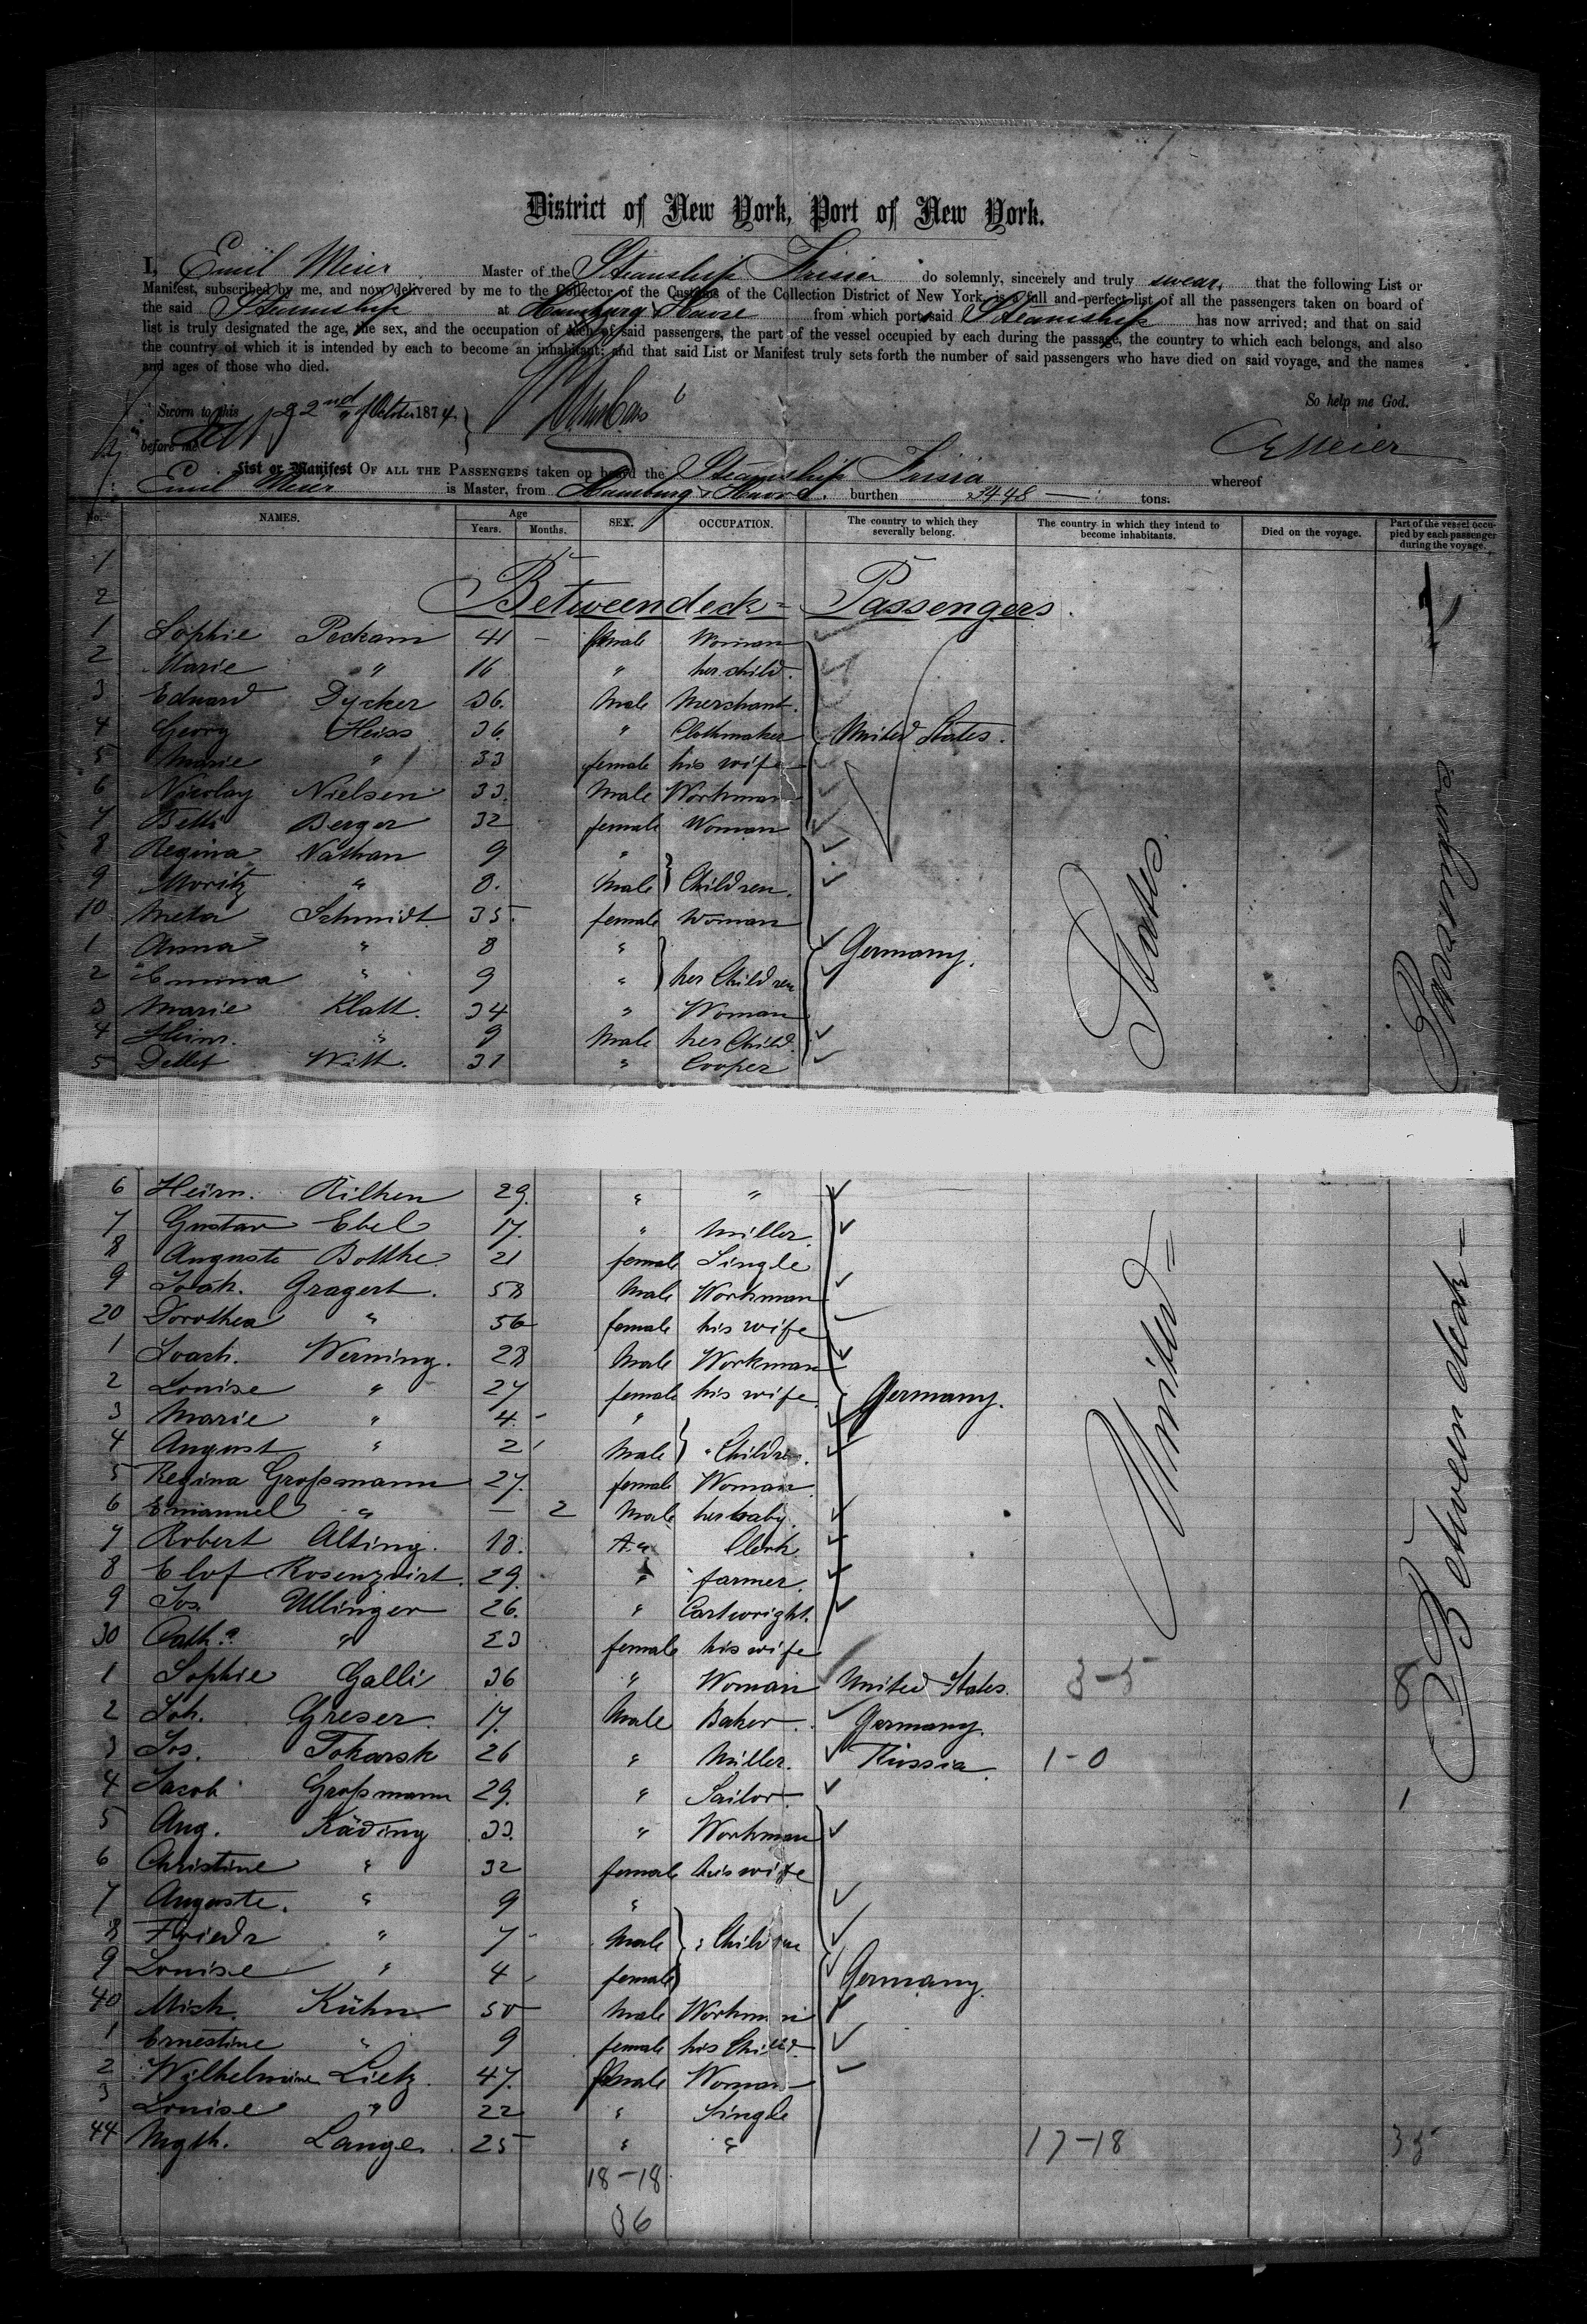 District of New York, Port of New York.
I, Emil Meier Master of the Steamship Frisia do solemnly, sincerely and truly swear, that the following List or
Manifest, subscribed by me, and now delivered by me to the Collector of the Customs of the Collection District of New York, is a full and perfect list of all the passengers taken on board of
the said Steamship at Hamburg & Havre from which port said Steamship has now arrived; and that on said
list is truly designated the age, the sex, and the occupation of each of said passengers, the part of the vessel occupied by each during the passage, the country to which each belongs, and also
the country of which it is intended by each to become an inhabitant; and that said List or Manifest truly sets forth the number of said passengers who have died on said voyage, and the names
and ages of those who died.
So help me God.
Sworn to this 22nd of October 1874
before me
E Meier
List or Manifest OF ALL THE PASSENGERS taken on board the Steamship Frisia whereof
Emil Meier is Master, from Hamburg & Havre. burthen 3448 — tons.
No. NAMES. Age Years. Months. SEX. OCCUPATION. The country to which they severally belong. The country in which they intend to become inhabitants. Died on the voyage. Part of the vessel occupied by each passenger during the voyage.
1
2 Betweendeck = Passengers.
1 Sophie Peckam 41 - female Woman
2 Marie " 16 " her child.
3 Eduard Dycker 36. Male Merchant.
4 Georg Heiss 36. " Clothmaker United States.
5 Marie " 33 female his wife
6 Nicolay Nielsen 33. Male Workman
7 Betti Berger 32 female Woman
8 Regina Nathan 9 "
9 Moritz " 8. Male Children.
10 Meta Schmidt 35. female Woman
1 Anna " 8 " Germany.
2 Emma " 9 " her Children
3 Marie Klatt. 34 " Woman
4 Heinr. " 9 Male her Child.
5 Detlef Witt. 31 " Cooper
6 Heinr. Rilken 29. " "
7 Gustav Ebel 17. " Miller.
8 Auguste Bottke. 21 female Single
9 Joach. Gragert. 58 Male Workman
20 Dorothea " 56 female his wife
1 Joach. Werning. 28 Male Workman
2 Louise " 27 female his wife Germany.
3 Marie " 4. - "
4 August " 2 Male " Children.
5 Regina Großmann 27. female Woman.
6 Emanuel " — 2 Male her baby.
7 Robert Alting. 18. " Clerk
8 Elof Rosenqvist. 29. " farmer.
9 Jos. Ullinger 26. " Cartwright.
30 Cath.a " 23 female his wife
1 Sophie Galli 36 " Woman United States. 3-5 8
2 Joh. Greser. 17. Male Baker. Germany.
3 Jos. Tokarsk 26 " Miller. Russia. 1-0
4 Jacob Großmann 29. " Sailor. 1
5 Aug. Käding 33. " Workman
6 Christine " 32 female his wife
7 Auguste. " 9 "
8 Friedr " 7 Male " Children
9 Louise " 4 female Germany.
40 Mich. Kühn 50 Male Workman
1 Ernestine " 9 female his Child.
2 Wilhelmine Lietz. 47. female Woman
3 Louise " 22 " Single
44 Mgth. Lange. 25 " " 17-18 35
18-18
36
United = States.
Betweendeck = Passengers